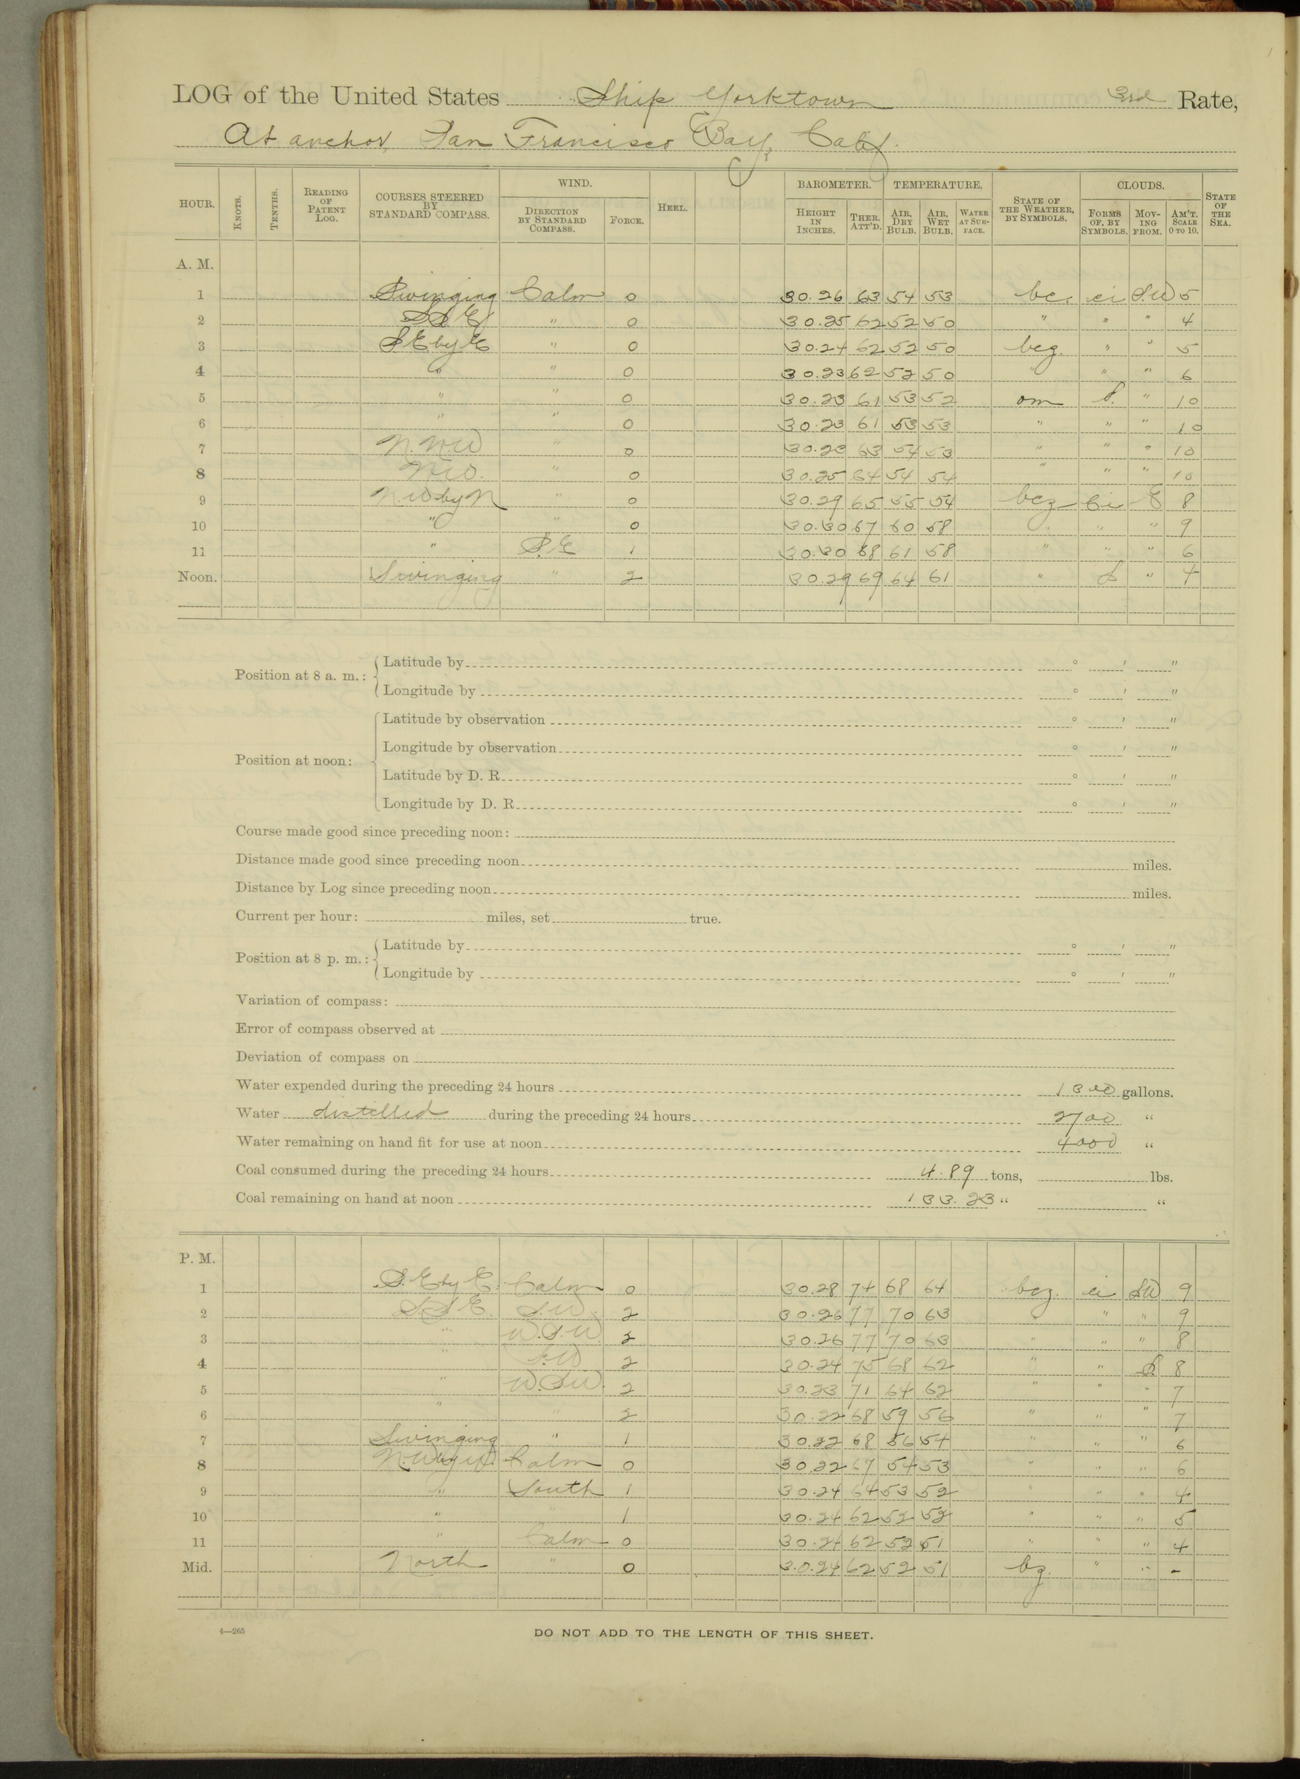 LOG of the United States Ship Yorktown 3rd Rate,
At anchor, San Francisco Bay, Calif.
HOUR. KNOTS. TENTHS. READING OF PATENT LOG. COURSES STEERED BY STANDARD COMPASS. WIND. DIRECTION BY STANDARD COMPASS. FORCE. HEEL. BAROMETER. HEIGHT IN INCHES. THER. ATT'D. TEMPERATURE. AIR, DRY BULB. AIR, WET BULB. WATER AT SURFACE. STATE OF THE WEATHER, BY SYMBOLS. CLOUDS. FORMS OF, BY SYMBOLS. MOVING FROM. AM'T. SCALE 0 TO 10. STATE OF THE SEA.
A. M.
1 Swinging Calm 0 30.26 63 54 53 bc. ci SW 5
2 SSE " 0 30.25 62 52 50 " " " 4
3 SE by E " 0 30.24 62 52 50 bcg. " " 5
4 " " 0 30.23 62 52 50 " " " 6
5 " " 0 30.23 61 53 52 om S. " 10
6 " " 0 30.23 61 53 53 " " " 10
7 N.N.W " 0 30.23 63 54 53 " " " 10
8 NW. " 0 30.25 64 54 54 " " " 10
9 N.W by N " 0 30.29 65 55 54 bcz Ci E 8
10 " " 0 30.30 67 60 58 " " " 9
11 " S.E 1 30.30 68 61 58 " " " 6
Noon. Swinging " 2 30.29 69 64 61 " S " 4
Position at 8 a. m.: Latitude by ° ′ ″
Longitude by ° ′ ″
Position at noon: Latitude by observation ° ′ ″
Longitude by observation ° ′ ″
Latitude by D. R. ° ′ ″
Longitude by D. R. ° ′ ″
Course made good since preceding noon:
Distance made good since preceding noon miles.
Distance by Log since preceding noon miles.
Current per hour: miles, set true.
Position at 8 p. m.: Latitude by ° ′ ″
Longitude by ° ′ ″
Variation of compass:
Error of compass observed at
Deviation of compass on
Water expended during the preceding 24 hours 1300 gallons.
Water distilled during the preceding 24 hours 2700 "
Water remaining on hand fit for use at noon 4000 "
Coal consumed during the preceding 24 hours 4.89 tons, lbs.
Coal remaining on hand at noon 133.23 " "
P. M.
1 S.E by E. Calm 0 30.28 74 68 64 bcz. ci SW 9
2 SSE. S.W. 2 30.26 77 70 63 " " " 9
3 " W.S.W. 2 30.26 77 70 63 " " " 8
4 " S.W 2 30.24 75 68 62 " " S 8
5 " W.S.W. 2 30.23 71 64 62 " " " 7
6 " " 2 30.22 68 59 56 " " " 7
7 Swinging " 1 30.22 68 56 54 " " " 6
8 N.W by W. Calm 0 30.22 67 54 53 " " " 6
9 " South 1 30.24 64 53 52 " " " 4
10 " " 1 30.24 62 52 52 " " " 5
11 " Calm 0 30.24 62 52 51 " " " 4
Mid. North " 0 30.24 62 52 51 bz. " " -
4—265
DO NOT ADD TO THE LENGTH OF THIS SHEET.